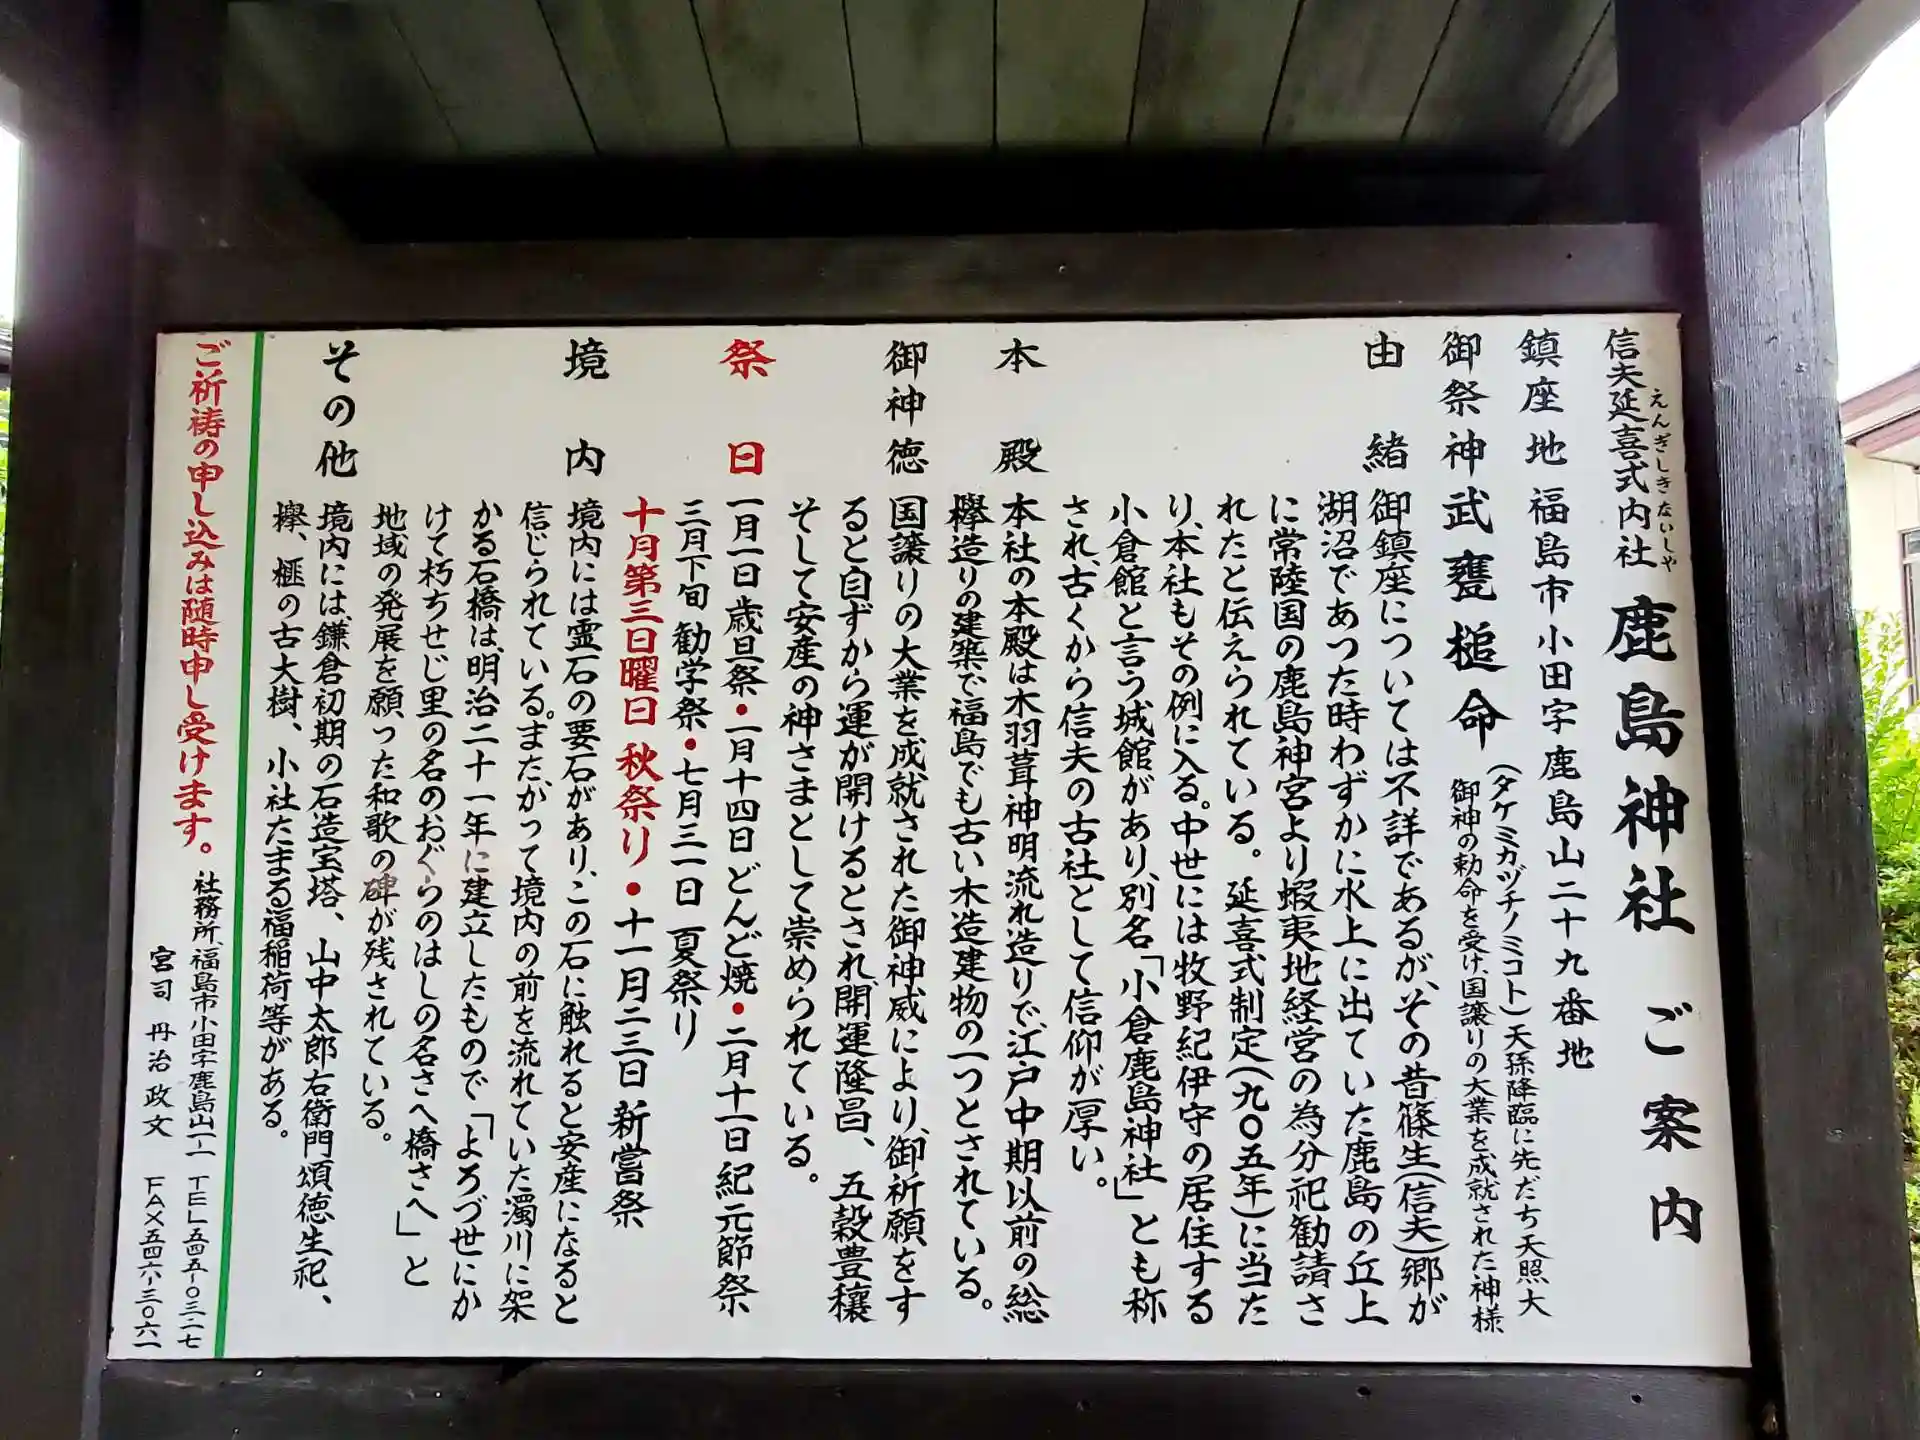 信夫延喜式内社 鹿島神社 ご案内
えんぎしきないしや
鎮座地 福島市小田字鹿島山二十九番地
御祭神 武甕槌命 (タケミカヅチノミコト)天孫降臨に先だち天照大
御神の勅命を受け、国譲りの大業を成就された神様
由緒 御鎮座については不詳であるが、その昔篠生(信夫)郷が
湖沼であつた時わずかに水上に出ていた鹿島の丘上
に常陸国の鹿島神宮より蝦夷地経営の為分祀勧請さ
れたと伝えられている。延喜式制定(九〇五年)に当た
り、本社もその例に入る。中世には牧野紀伊守の居住する
小倉館と言う城館があり、別名「小倉鹿島神社」とも称
され、古くから信夫の古社として信仰が厚い。
本殿 本社の本殿は木羽葺神明流れ造りで、江戸中期以前の総
欅造りの建築で福島でも古い木造建物の一つとされている。
御神徳 国譲りの大業を成就された御神威により、御祈願をす
ると自ずから運が開けるとされ、開運隆昌、五穀豊穣
そして安産の神さまとして崇められている。
祭日 一月一日歳旦祭・一月十四日どんど焼・二月十一日紀元節祭
三月下旬勧学祭・七月三一日夏祭り
十月第三日曜日秋祭り・十一月二三日新嘗祭
境内 境内には霊石の要石があり、この石に触れると安産になると
信じられている。また、かつて境内の前を流れていた濁川に架
かる石橋は、明治二十一年に建立したもので「よろづ世にか
けて朽ちせじ里の名のおぐらのはしの名さへ橋さへ」と
地域の発展を願った和歌の碑が残されている。
その他 境内には、鎌倉初期の石造宝塔、山中太郎右衛門頌徳生祀、
欅、榧の古大樹、小社たまる福稲荷等がある。
ご祈祷の申し込みは随時申し受けます。 社務所、福島市小田字鹿島山一-一 TEL五四五-〇三-一七
宮司 丹治政文 FAX五四六-三〇六一